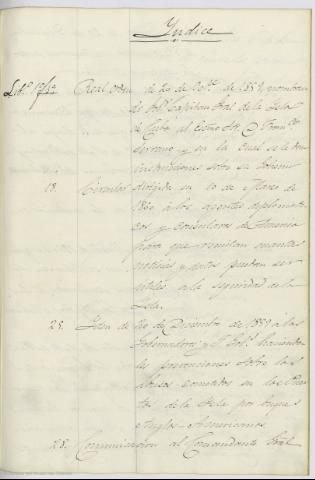 Indice
Real orden de 20 de 7bre. de 1859, nombran
do Gob.r Capitan Gral de la Isla
de Cuba al Exmo Sor. D. Franco.
Serrano y en la cual se le dan
instrucciones sobre su gobierno
13. Circular dirijida en 10 de Marzo de
1860 á los agentes diplomati
cos y consulares de America
para que remitan cuantas
noticias y datos puedan ser
utiles á la seguridad de la
Isla.
28. Idem de 20 de Diciembre de 1859 á los
Gobernadores y T. Gob.s haciendo
les prevenciones sobre los
abusos cometidos en los Puer
tos de la Isla por buques
Anglo-Americanos
28. Comunicacion al Comandante Gral